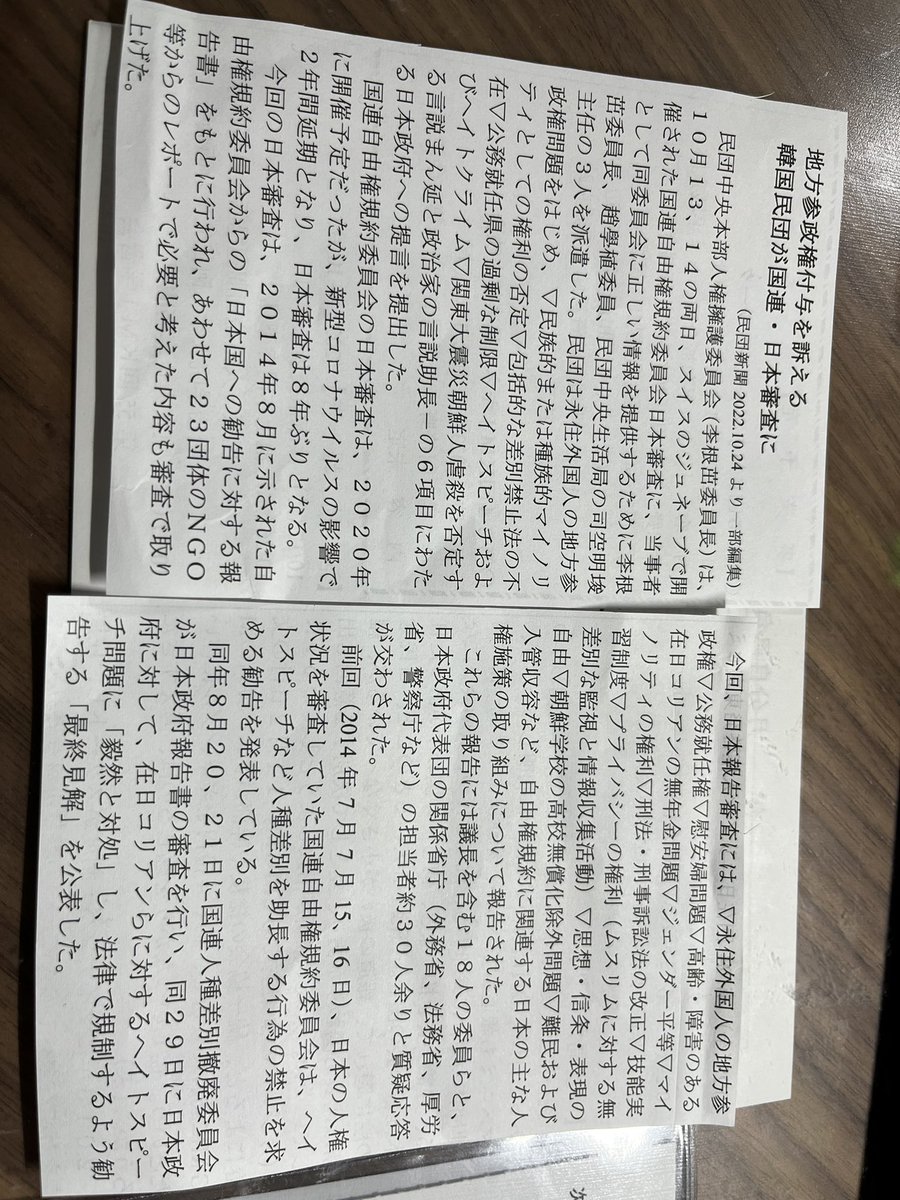 地方参政権付与を訴える
韓国民団が国連・日本審査に
(民団新聞 2022.10.24 より一部編集)
民団中央本部人権擁護委員会(李根茁委員長)は、
10月13、14の両日、スイスのジュネーブで開
催された国連自由権規約委員会日本審査に、当事者
として同委員会に正しい情報を提供するために李根
茁委員長、趙學植委員、民団中央生活局の司空明埈
主任の3人を派遣した。民団は永住外国人の地方参
政権問題をはじめ、▽民族的または種族的マイノリ
ティとしての権利の否定▽包括的な差別禁止法の不
在▽公務就任県の過剰な制限▽ヘイトスピーチおよ
びヘイトクライム▽関東大震災朝鮮人虐殺を否定す
る言説まん延と政治家の言説助長－の6項目にわた
る日本政府への提言を提出した。
国連自由権規約委員会の日本審査は、2020年
に開催予定だったが、新型コロナウイルスの影響で
2年間延期となり、日本審査は8年ぶりとなる。
今回の日本審査は、2014年8月に示された自
由権規約委員会からの「日本国への勧告に対する報
告書」をもとに行われ、あわせて23団体のNGO
等からのレポートで必要と考えた内容も審査で取り
上げた。
今回、日本報告審査には、▽永住外国人の地方参
政権▽公務就任権▽慰安婦問題▽高齢・障害のある
在日コリアンの無年金問題▽ジェンダー平等▽マイ
ノリティの権利▽刑法・刑事訴訟法の改正▽技能実
習制度▽プライバシーの権利(ムスリムに対する無
差別な監視と情報収集活動)▽思想・信条・表現の
自由▽朝鮮学校の高校無償化除外問題▽難民および
入管収容など、自由権規約に関連する日本の主な人
権施策の取り組みについて報告された。
これらの報告には議長を含む18人の委員らと、
日本政府代表団の関係省庁(外務省、法務省、厚労
省、警察庁など)の担当者約30人余りと質疑応答
が交わされた。
前回(2014年7月7月15、16日)、日本の人権
状況を審査していた国連自由権規約委員会は、ヘイ
トスピーチなど人種差別を助長する行為の禁止を求
める勧告を発表している。
同年8月20、21日に国連人種差別撤廃委員会
が日本政府報告書の審査を行い、同29日に日本政
府に対して、在日コリアンらに対するヘイトスピー
チ問題に「毅然と対処」し、法律で規制するよう勧
告する「最終見解」を公表した。
次